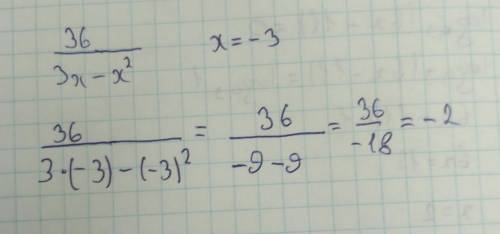 36/(3x - x²)    x = -3
36/(3·(-3) - (-3)²) = 36/(-9 - 9) = 36/-18 = -2